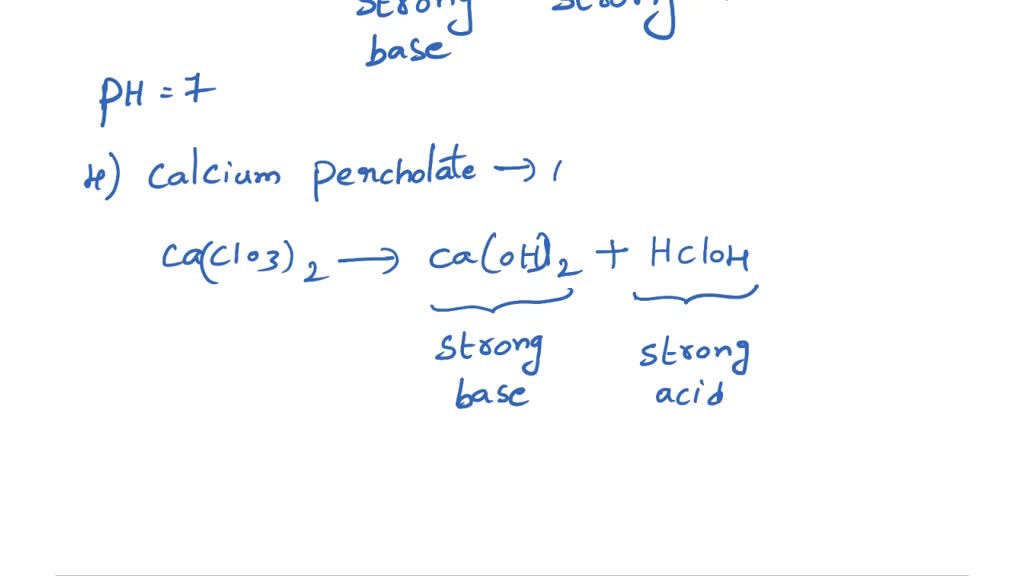 strong strong
base
PH = 7
4) Calcium percholate →
Ca(ClO3)2 → Ca(OH)2 + HClOH
strong strong
base acid